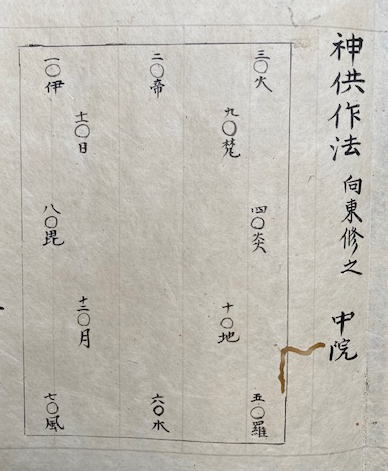 神供作法 向東修之 中院
三〇火
二〇帝
一〇伊
九〇梵
十一〇日
四〇炎
八〇毘
十〇地
十二〇月
五〇羅
六〇水
七〇風